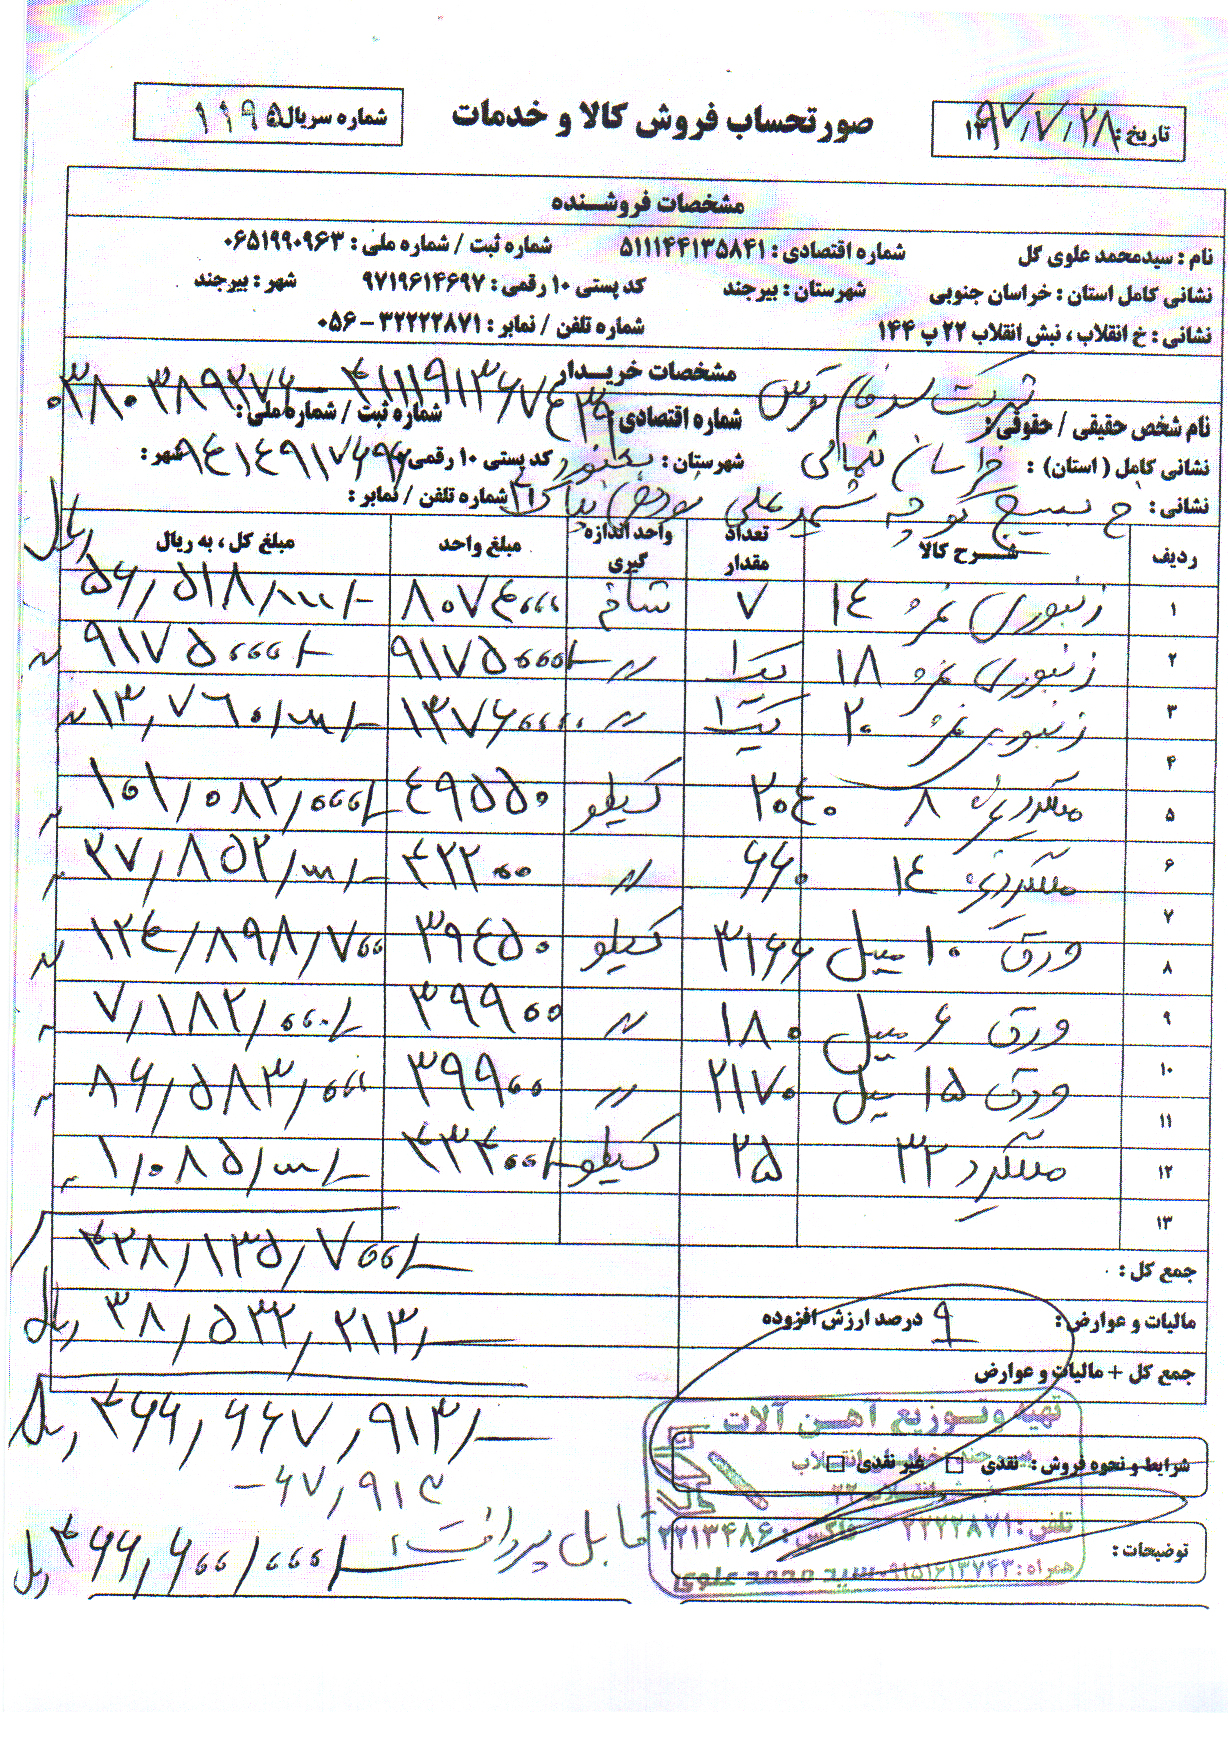 صورتحساب فروش کالا و خدمات
تاریخ: ۱۳۹۷/۷/۲۸
شماره سریال ۱۱۹۵
مشخصات فروشنده
نام : سیدمحمد علوی گل شماره اقتصادی : ۵۱۱۱۴۴۱۳۵۸۴۱ شماره ثبت / شماره ملی : ۰۶۵۱۹۹۰۹۶۳
نشانی کامل استان : خراسان جنوبی شهرستان : بیرجند کد پستی ۱۰ رقمی : ۹۷۱۹۶۱۴۶۹۷ شهر : بیرجند
نشانی : خ انقلاب ، نبش انقلاب ۲۲ پ ۱۴۴ شماره تلفن / نمابر : ۳۲۲۲۲۸۷۱ - ۰۵۶
مشخصات خریدار
نام شخص حقیقی / حقوقی: شرکت توس شماره اقتصادی شماره ثبت / شماره ملی :
نشانی کامل ( استان) : خراسان شمالی شهرستان : بجنورد کد پستی ۱۰ رقمی: شهر :
نشانی : خ بسیج کوچه شهید علی شماره تلفن / نمابر :
ردیف شرح کالا تعداد مقدار واحد اندازه گیری مبلغ واحد مبلغ کل ، به ریال ریال
۱ زنبوری نمره ۱۴ ۷ شاخه ۸۰۷۴۰۰۰ ۵۶/۵۱۸/۰۰۰/-
۲ زنبوری نمره ۱۸ یک ۱ 〃 ۹۱۷۵۰۰۰/- ۹۱۷۵۰۰۰/-
۳ زنبوری نمره ۲۰ یک ۱ 〃 ۱۳۷۶۰۰۰۰ ۱۳/۷۶۰/۰۰۰/-
۴
۵ میلگرد نمره ۸ ۲۰۴۰ کیلو ۴۹۵۵۰ ۱۰۱/۰۸۲/۰۰۰/-
۶ میلگرد نمره ۱۴ ۶۶۰ 〃 ۴۲۲۰۰ ۲۷/۸۵۲/۰۰۰/-
۷
۸ ورق ۱۰ میل ۳۱۶۶ کیلو ۳۹۴۵۰ ۱۲۴/۸۹۸/۷۰۰
۹ ورق ۶ میل ۱۸۰ 〃 ۳۹۹۰۰ ۷/۱۸۲/۰۰۰/-
۱۰ ورق ۱۵ میل ۲۱۷۰ 〃 ۳۹۹۰۰ ۸۶/۵۸۳/۰۰۰
۱۱
۱۲ میلگرد ۳۲ ۲۵ کیلو ۴۳۴۰۰/- ۱/۰۸۵/۰۰۰/-
۱۳
جمع کل : ۴۲۸/۱۳۵/۷۰۰/-
مالیات و عوارض: ۹ درصد ارزش افزوده ۳۸/۵۳۲/۲۱۳/ ریال
جمع کل + مالیات و عوارض
۴۶۶/۶۶۷/۹۱۳/- ریال
تهیه و توزیع آهن آلات
شرایط و نحوه فروش : نقدی غیر نقدی
۶۷/۹۱۳-
تلفن: ۲۲۲۲۸۷۱ فاکس: ۲۲۱۳۴۸۶
توضیحات :
قابل پرداخت: ۴۶۶/۶۰۰/۰۰۰/- ریال
همراه: ۰۹۱۵۱۶۱۳۷۴۳ سید محمد علوی